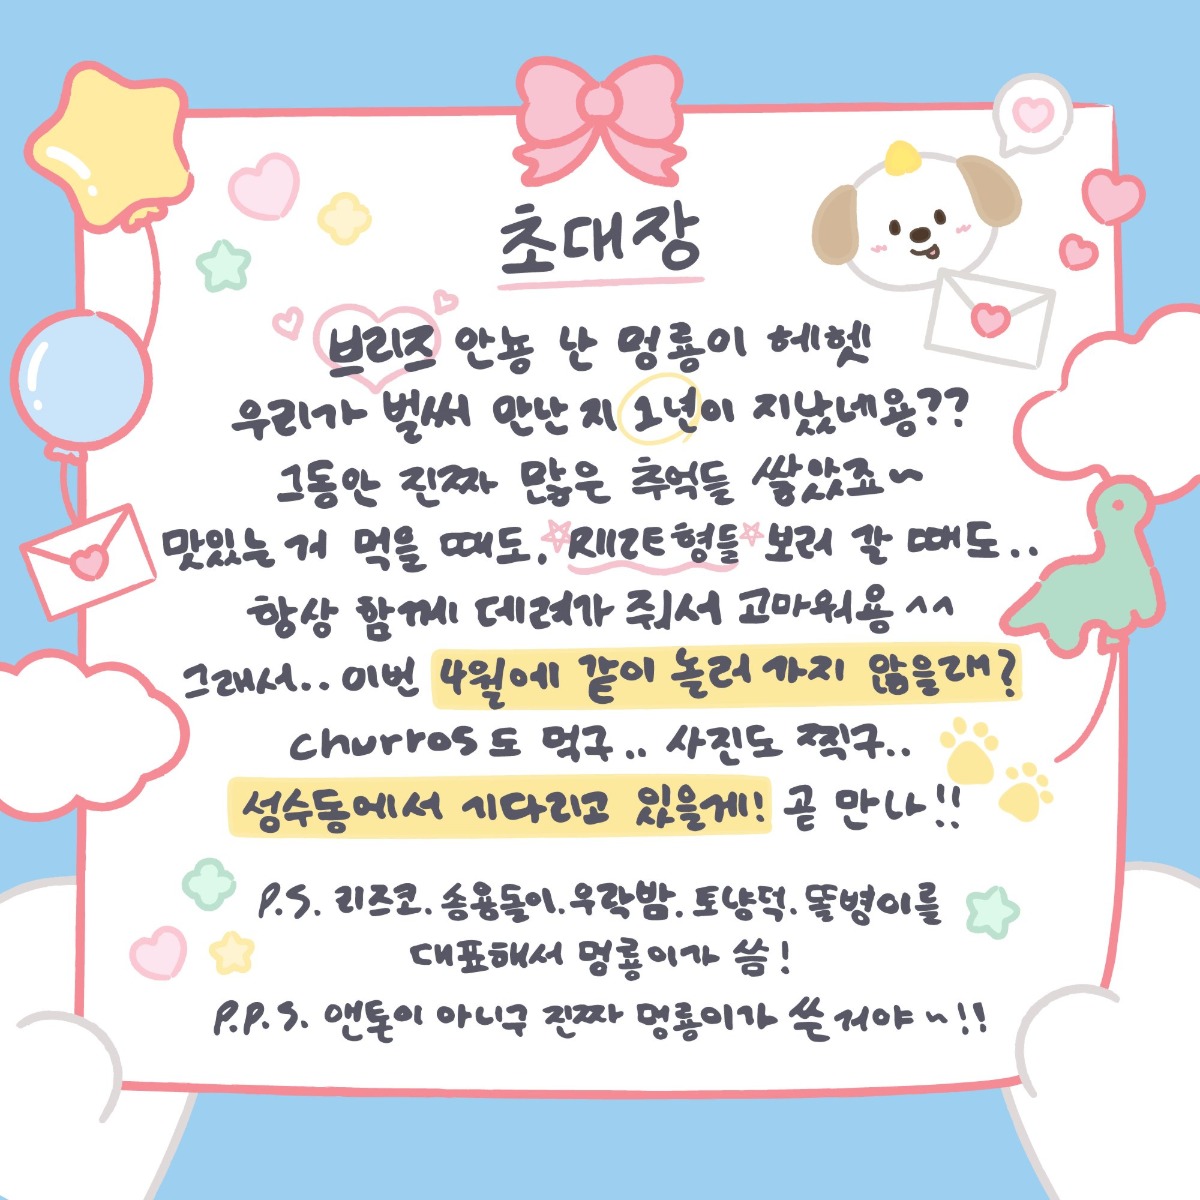 초대장
브리즈 안뇽 난 멍룡이 헤헷
우리가 벌써 만난 지 1년이 지났네용??
그동안 진짜 많은 추억들 쌓았죠~
맛있는 거 먹을 때도, RIIZE 형들 보러 갈 때도..
항상 함께 데려가 줘서 고마워용 ^^
그래서.. 이번 4월에 같이 놀러 가지 않을래?
churros도 먹구.. 사진도 찍구..
성수동에서 기다리고 있을게! 곧 만나!!
P.S. 리즈코. 송용돌이. 우락밤. 토냥덕. 똘병이를
대표해서 멍룡이가 씀!
P.P.S. 앤톤이 아니구 진짜 멍룡이가 쓴 거야~!!